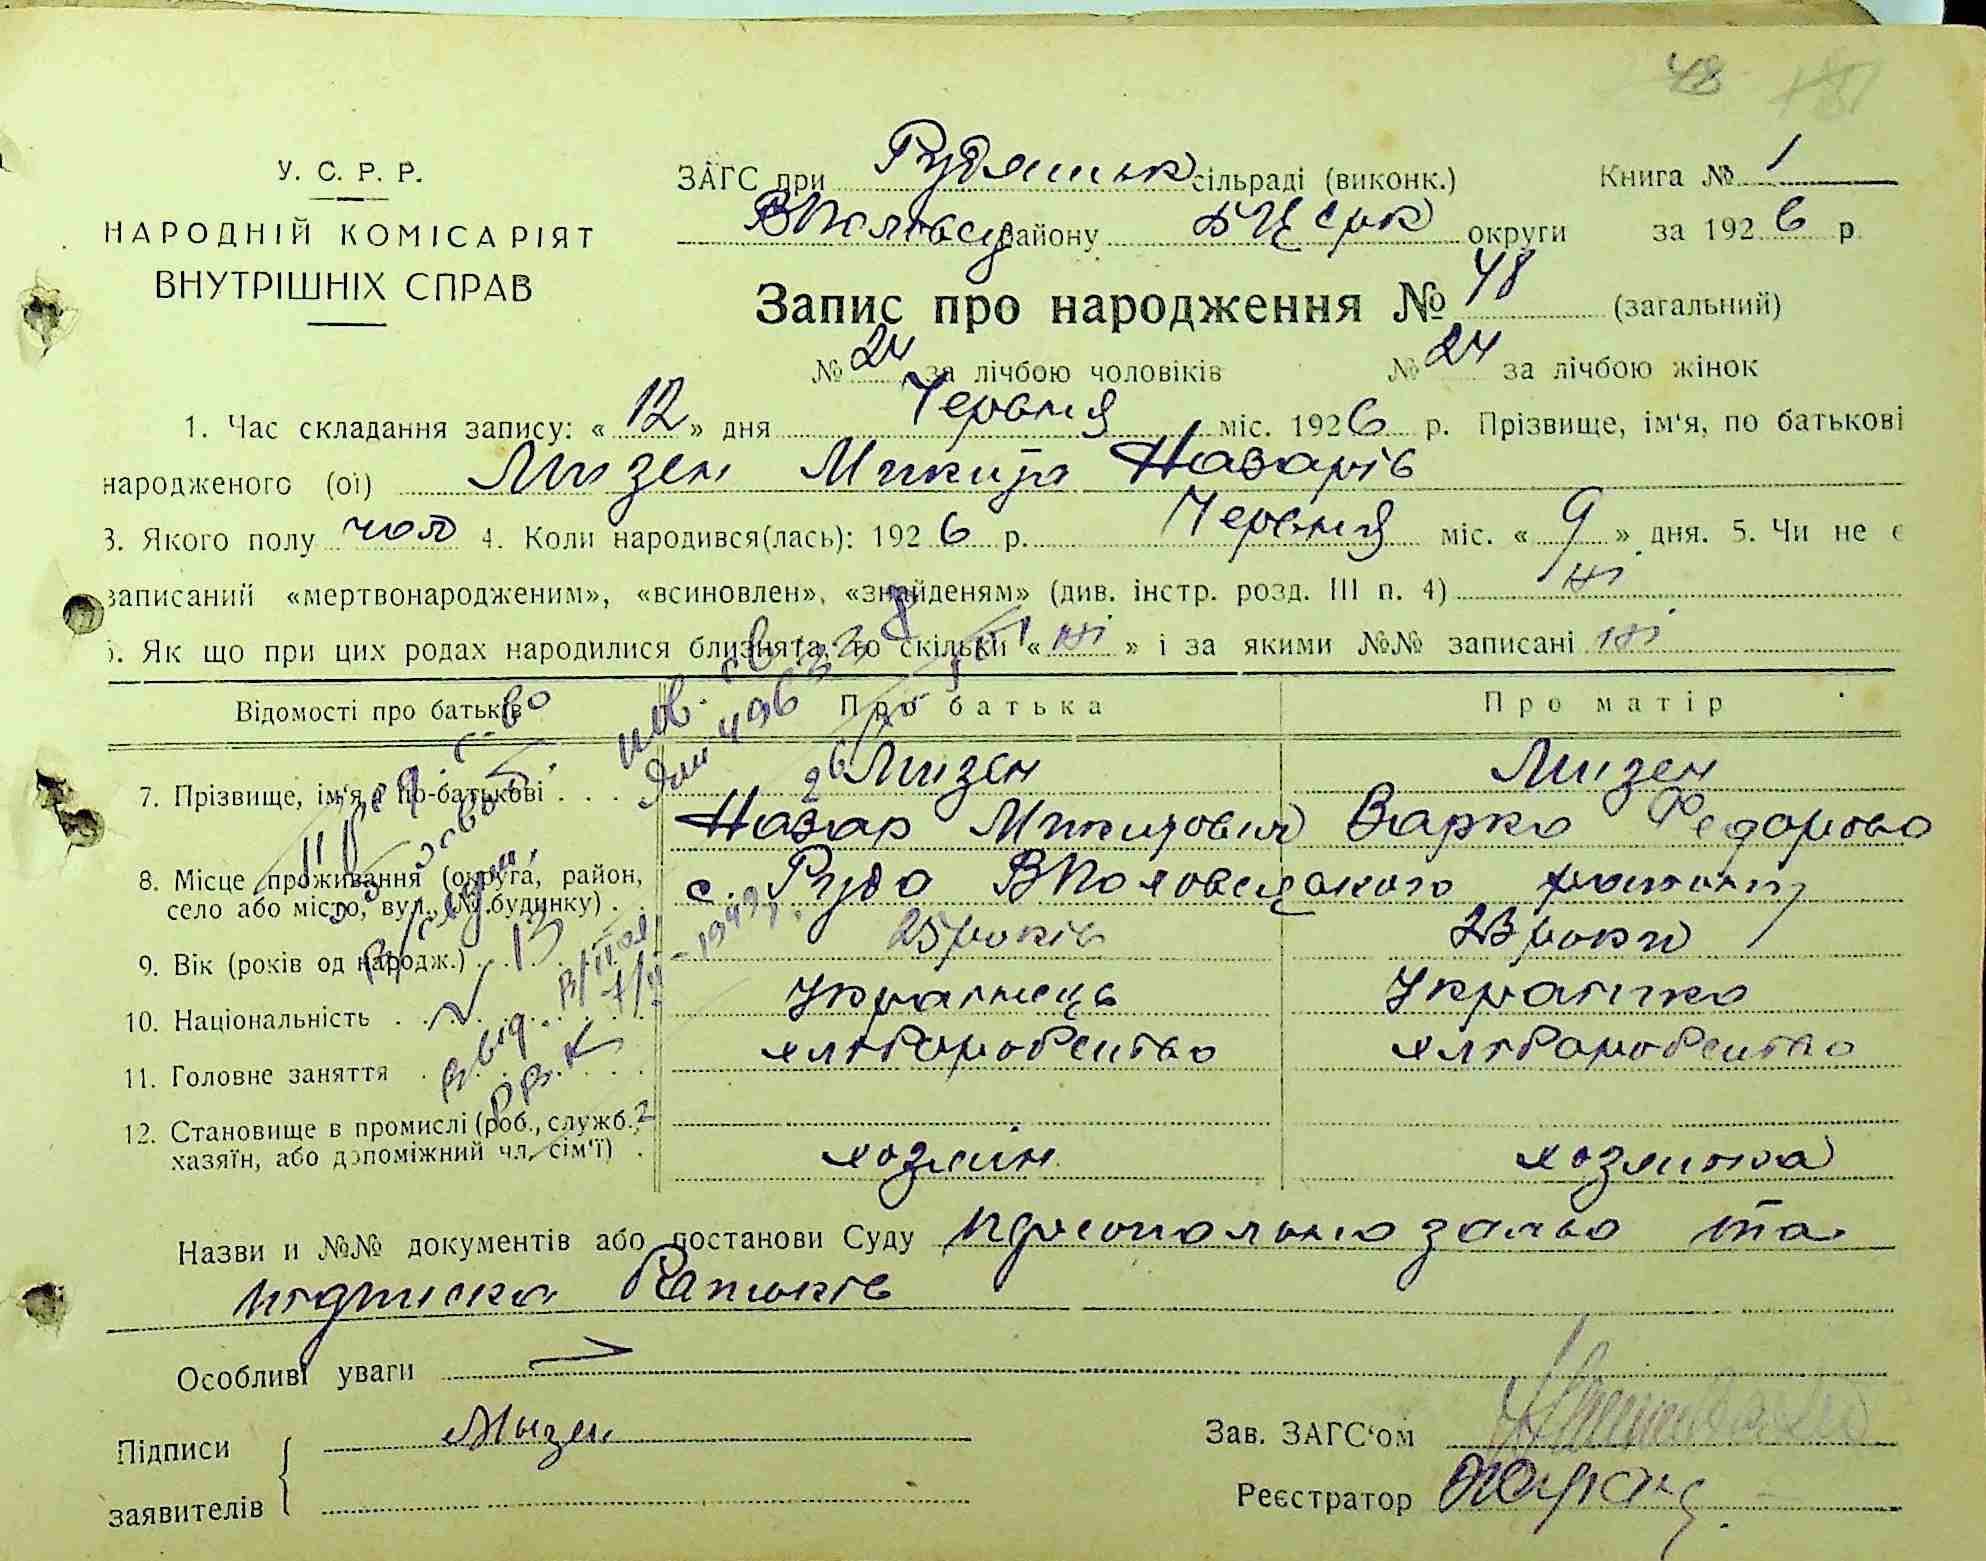 48
У. С. Р. Р.
НАРОДНІЙ КОМІСАРІЯТ
ВНУТРІШНІХ СПРАВ
ЗАГС при Рудянськ сільраді (виконк.) Книга № 1
району БЦерк округи за 1926 р.
Запис про народження № 48 (загальний)
№ 24 за лічбою чоловіків № 24 за лічбою жінок
1. Час складання запису: «12» дня Червня міс. 1926 р. Прізвище, ім'я, по батькові
народженого (ої) Мизен Микита Назарів
3. Якого полу чол 4. Коли народився(лась): 1926 р. Червня міс. «9» дня. 5. Чи не є
записаний «мертвонародженим», «всиновлен», «знайденям» (див. інстр. розд. III п. 4) ні
Як що при цих родах народилися близнята, то скільки «ні» і за якими №№ записані ні
Відомості про батьків Про батька Про матір
7. Прізвище, ім'я, по-батькові . . . Мизен Мизен
Назар Микитович Варка Федорова
8. Місце проживання (округа, район,
село або місто, вул., №, будинку) . . с. Руда ВПоловецького району
9. Вік (років од народж.) . . 25 років 23 роки
10. Національність . . . Українець Українка
11. Головне заняття . . . хліборобство хліборобство
12. Становище в промислі (роб., служб.,
хазяїн, або допоміжний чл. сім'ї) . хозяін хозяйка
Назви и №№ документів або постанови Суду Персональна заява та
підписка батьків
Особливі уваги
Підписи Мызен
заявителів
Зав. ЗАГС'ом
Реєстратор